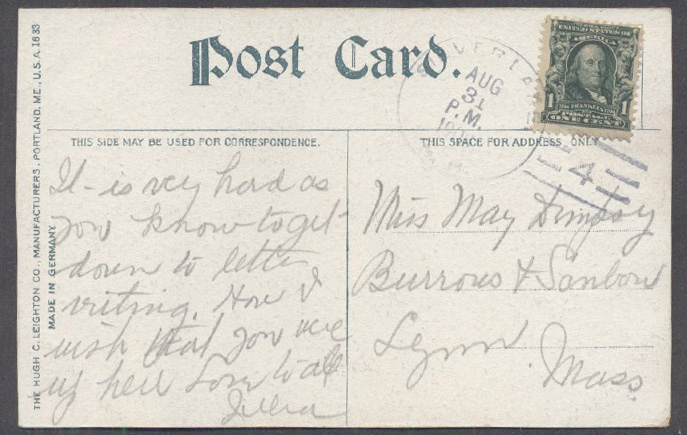 Post Card.
THIS SIDE MAY BE USED FOR CORRESPONDENCE.
THIS SPACE FOR ADDRESS ONLY
THE HUGH C. LEIGHTON CO., MANUFACTURERS, PORTLAND, ME., U.S.A. 1633
MADE IN GERMANY
It is very hard as
you know to get
down to letter
writing. How I
wish that you were
up here Love to all
AUG
31
P.M.
4
1
1
POSTAGE
ONE CENT
Miss May
Burrows &
Lynn
Mass.